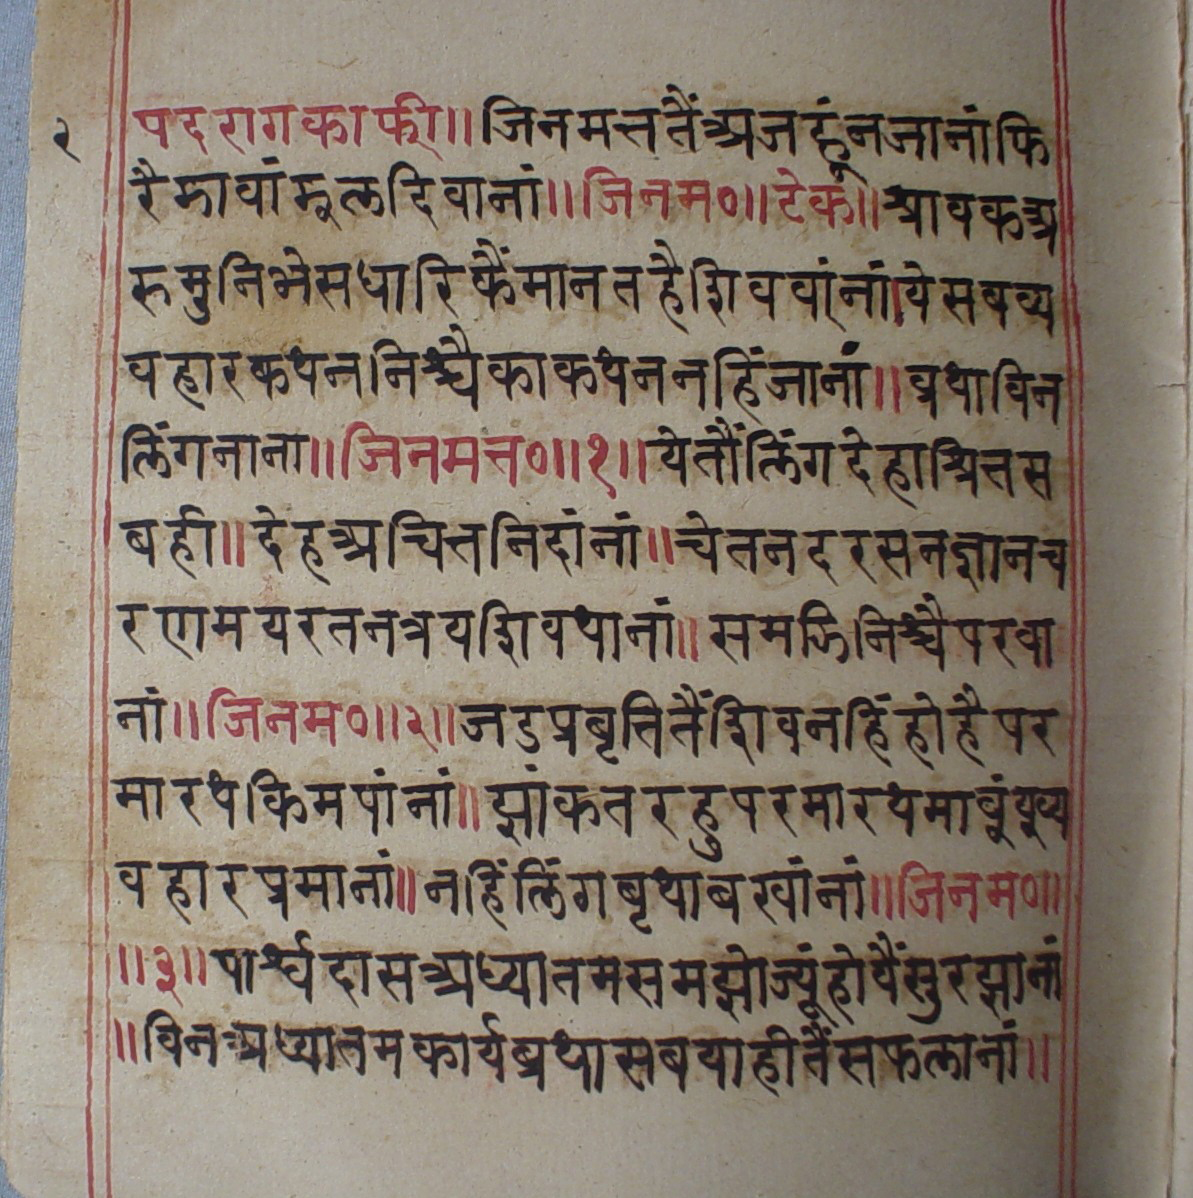 २
पद राग काफी॥ जिनमत्त तैं अजहूं न जानां फि
रै मावां मूल दिवानां॥ जिनम०॥ टेक॥ श्रावक अ
रु मुनि भेस धारि कैं मानत है शिव वांनां। ये सब व्य
वहार कथन निश्चै का कथन नहिं जानां॥ व्रथा विन
लिंग नाना॥ जिनमत्त०॥१॥ ये तौं लिंग देहाश्रित स
बही॥ देह अचित्त निदांनां॥ चेतन दरसन ज्ञान च
रणमय रतनत्रय शिव थानां॥ समझि निश्चै परवा
नां॥ जिनम०॥२॥ जड प्रबृत्ति तैं शिव नहिं हो है पर
मारथ किम पांनां॥ झांकत रहु परमारथ
वहार प्रमानां॥ नहिं लिंग बृथा बखांनां॥ जिनम०॥
॥३॥ पार्श्वदास अध्यातम समझो ज्यूं होयैं सुरझानां
॥ विन अध्यातम कार्य ब्रथा सब याही तैं सफलानां॥